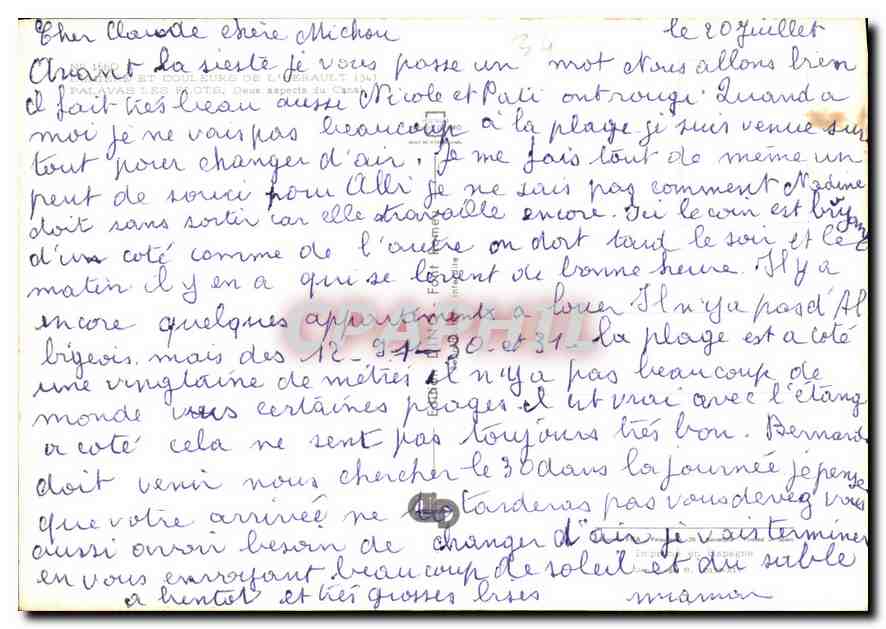 Cher Claude chère Michou le 20 Juillet
34
Avant la sieste je vous passe un mot Nous allons bien
ET COULEURS DE L'HERAULT (34)
PALAVAS LES FLOTS, Deux aspects du Canal
il fait très beau aussi Nicole et Pati ont rougi. Quand a
moi je ne vais pas beaucoup à la plage je suis venue sur
tout pour changer d'air. Je me fais tout de même un
peut de souci pour Albi je ne sais pas comment Nadine
doit sans sortir car elle travaille encore. Ici le coin est bruyant
d'un coté comme de l'autre on dort tard le soir et le
matin il y en a qui se levent de bonne heure. Il y a
encore quelques appartements a louer Il n'y a pas d'Al
CPAPHIL
bigeois mais des 12 - 91 - 30 - et 31 - la plage est a coté
une vingtaine de mètres il n'y a pas beaucoup de
monde vus certaines plages il est vrai avec l'étang
a coté cela ne sent pas toujours très bon. Bernard
doit venir nous chercher le 30 dans la journée je pense
que votre arrivée ne tarderas pas vous devez vous
aussi avoir besoin de changer d'air je vais terminer
en vous envoyant beaucoup de soleil et du sable
a bientot et très grosses bises maman